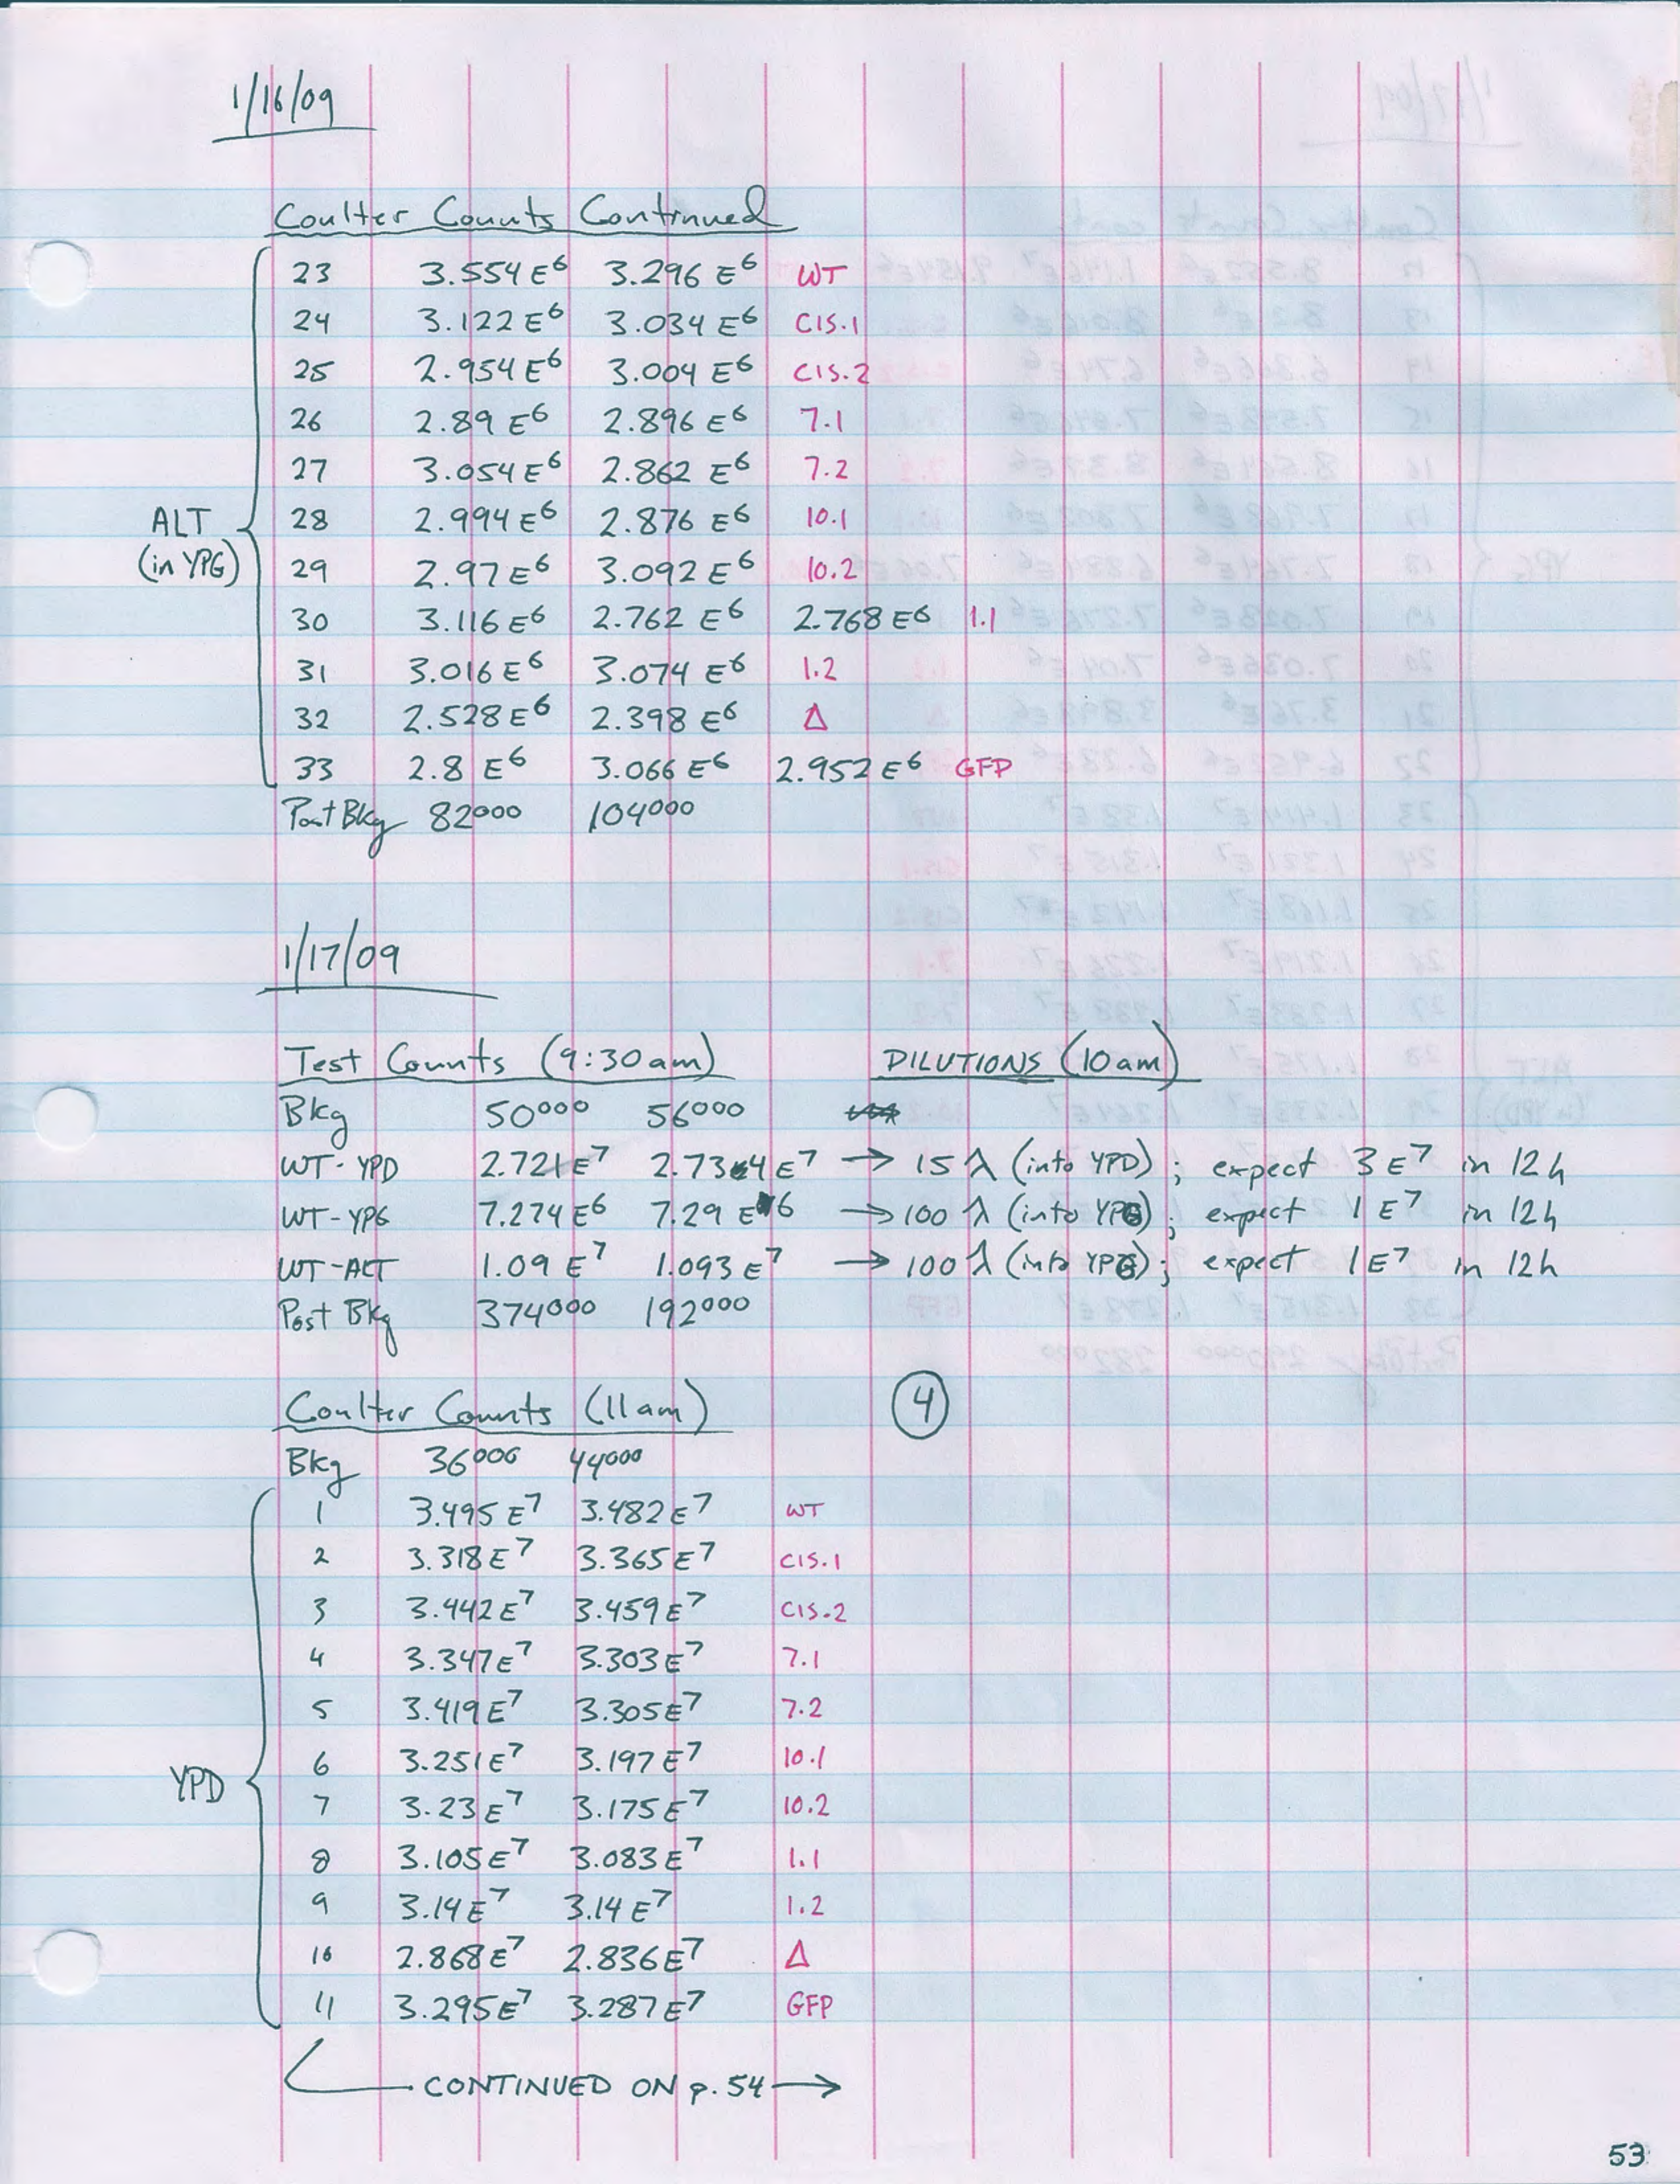 1/16/09
Coulter Counts Continued
23 3.554 E⁶ 3.296 E⁶ WT
24 3.122 E⁶ 3.034 E⁶ CIS.1
25 2.954 E⁶ 3.004 E⁶ CIS.2
26 2.89 E⁶ 2.896 E⁶ 7.1
27 3.054 E⁶ 2.862 E⁶ 7.2
ALT (in YPG)
28 2.994 E⁶ 2.876 E⁶ 10.1
29 2.97 E⁶ 3.092 E⁶ 10.2
30 3.116 E⁶ 2.762 E⁶ 2.768 E⁶ 1.1
31 3.016 E⁶ 3.074 E⁶ 1.2
32 2.528 E⁶ 2.398 E⁶ Δ
33 2.8 E⁶ 3.066 E⁶ 2.952 E⁶ GFP
Post Bkg 82000 104000
1/17/09
Test Counts (9:30am) DILUTIONS (10am)
Bkg 50000 56000
WT-YPD 2.721 E⁷ 2.734 E⁷ → 15 λ (into YPD); expect 3 E⁷ in 12h
WT-YPG 7.274 E⁶ 7.29 E⁶ → 100 λ (into YPG); expect 1 E⁷ in 12h
WT-ALT 1.09 E⁷ 1.093 E⁷ → 100 λ (into YPG); expect 1 E⁷ in 12h
Post Bkg 374000 192000
Coulter Counts (11am) 4
Bkg 36000 44000
1 3.495 E⁷ 3.482 E⁷ WT
2 3.318 E⁷ 3.365 E⁷ CIS.1
3 3.442 E⁷ 3.459 E⁷ CIS.2
4 3.347 E⁷ 3.303 E⁷ 7.1
5 3.419 E⁷ 3.305 E⁷ 7.2
6 3.251 E⁷ 3.197 E⁷ 10.1
YPD
7 3.23 E⁷ 3.175 E⁷ 10.2
8 3.105 E⁷ 3.083 E⁷ 1.1
9 3.14 E⁷ 3.14 E⁷ 1.2
10 2.868 E⁷ 2.836 E⁷ Δ
11 3.295 E⁷ 3.287 E⁷ GFP
CONTINUED ON p. 54 →
53